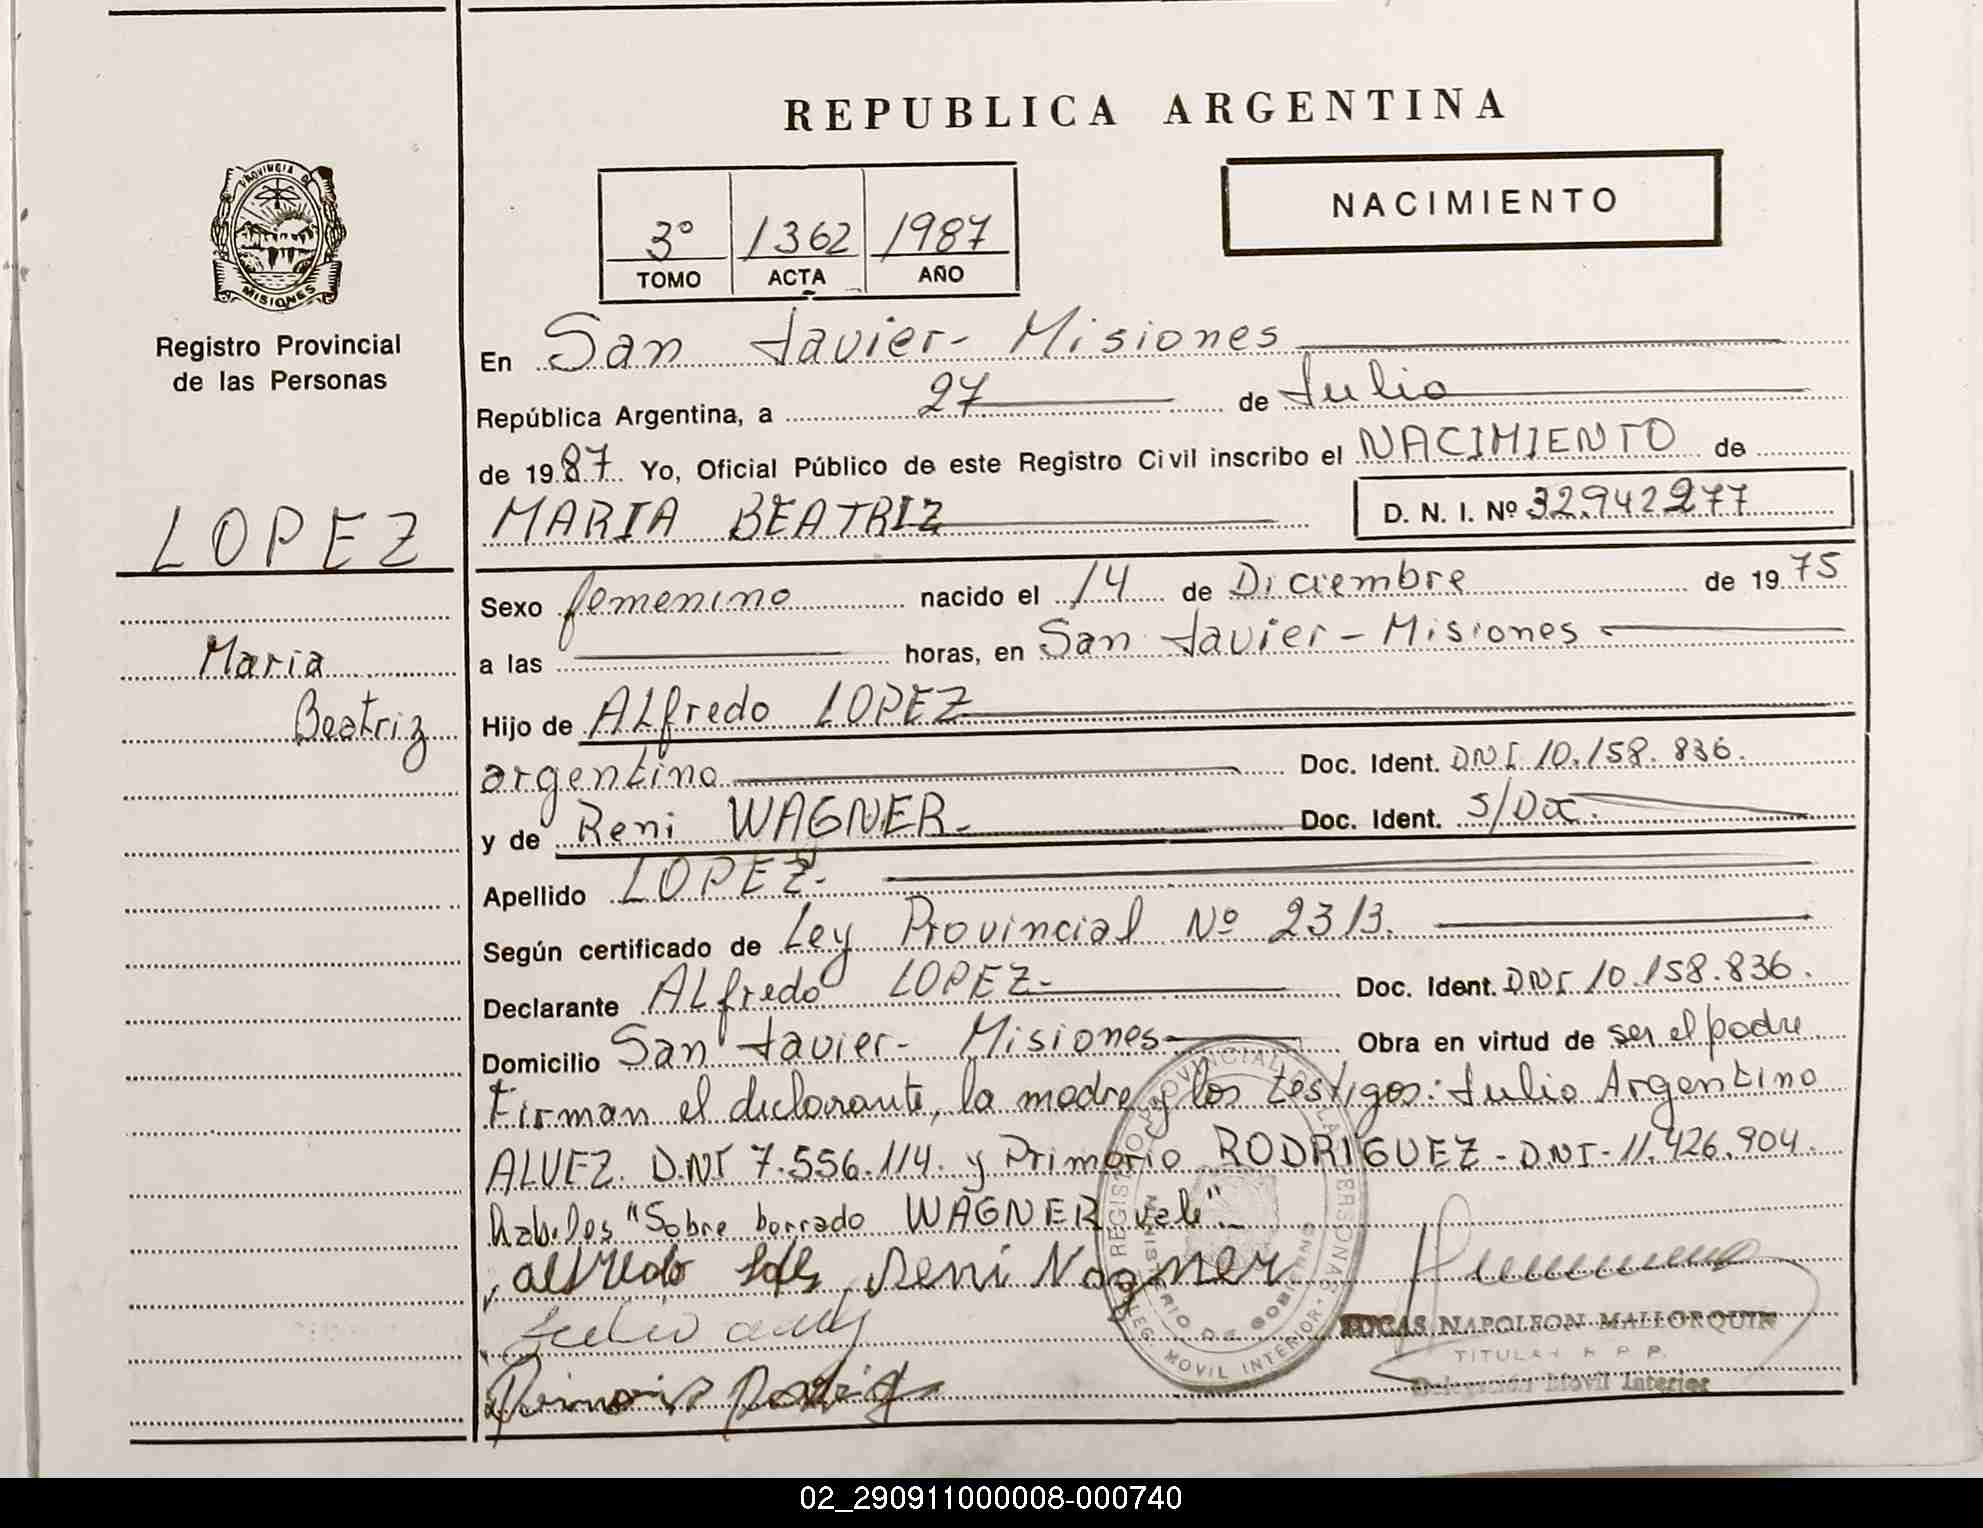 REPUBLICA ARGENTINA
NACIMIENTO
3º 1362 1987
TOMO ACTA AÑO
PROVINCIA DE MISIONES
Registro Provincial
de las Personas
LOPEZ
Maria
Beatriz
En San Javier - Misiones
República Argentina, a 27 de Julio
de 1987 Yo, Oficial Público de este Registro Civil inscribo el NACIMIENTO de
MARIA BEATRIZ D. N. I. Nº 32.942.277
Sexo femenino nacido el 14 de Diciembre de 1975
a las horas, en San Javier - Misiones
Hijo de ALfredo LOPEZ
argentino Doc. Ident. DNI 10.158.836.
y de Reni WAGNER. Doc. Ident. S/Doc.
Apellido LOPEZ.
Según certificado de Ley Provincial Nº 2313.
Declarante ALfredo LOPEZ.- Doc. Ident. DNI 10.158.836.
Domicilio San Javier - Misiones Obra en virtud de ser el padre
Firman el declarante, la madre y los testigos: Julio Argentino
ALVEZ. DNI 7.556.114. y Primorio RODRIGUEZ - DNI - 11.426.904.
habiles "Sobre borrado WAGNER vale".-
alfredo Reni Wagner
Julio
REGISTRO PROVINCIAL DE LAS PERSONAS
MINISTERIO DE GOBIERNO
DELEG. MOVIL INTERIOR
LUCAS NAPOLEON MALLORQUIN
TITULAR R. P. P.
Delegación Movil Interior
02_290911000008-000740